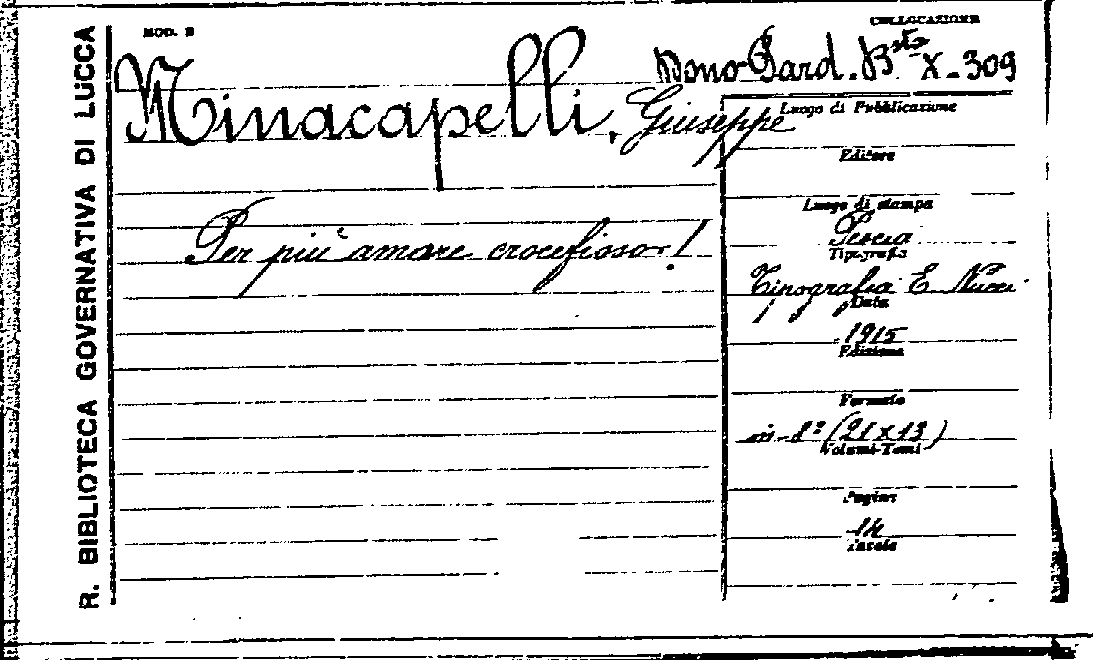 R. BIBLIOTECA GOVERNATIVA DI LUCCA
MOD. B
COLLOCAZIONE
Dono Pard. Bsta X - 309
Minacapelli, Giuseppe
Per più amare crocefisso!
Luogo di Pubblicazione
Editore
Luogo di stampa
Pescia
Tipografia
Tipografia E. Nucci
Data
1915
Edizione
Formato
in-8º (21 x 13)
Volumi-Tomi
Pagine
14
Tavole